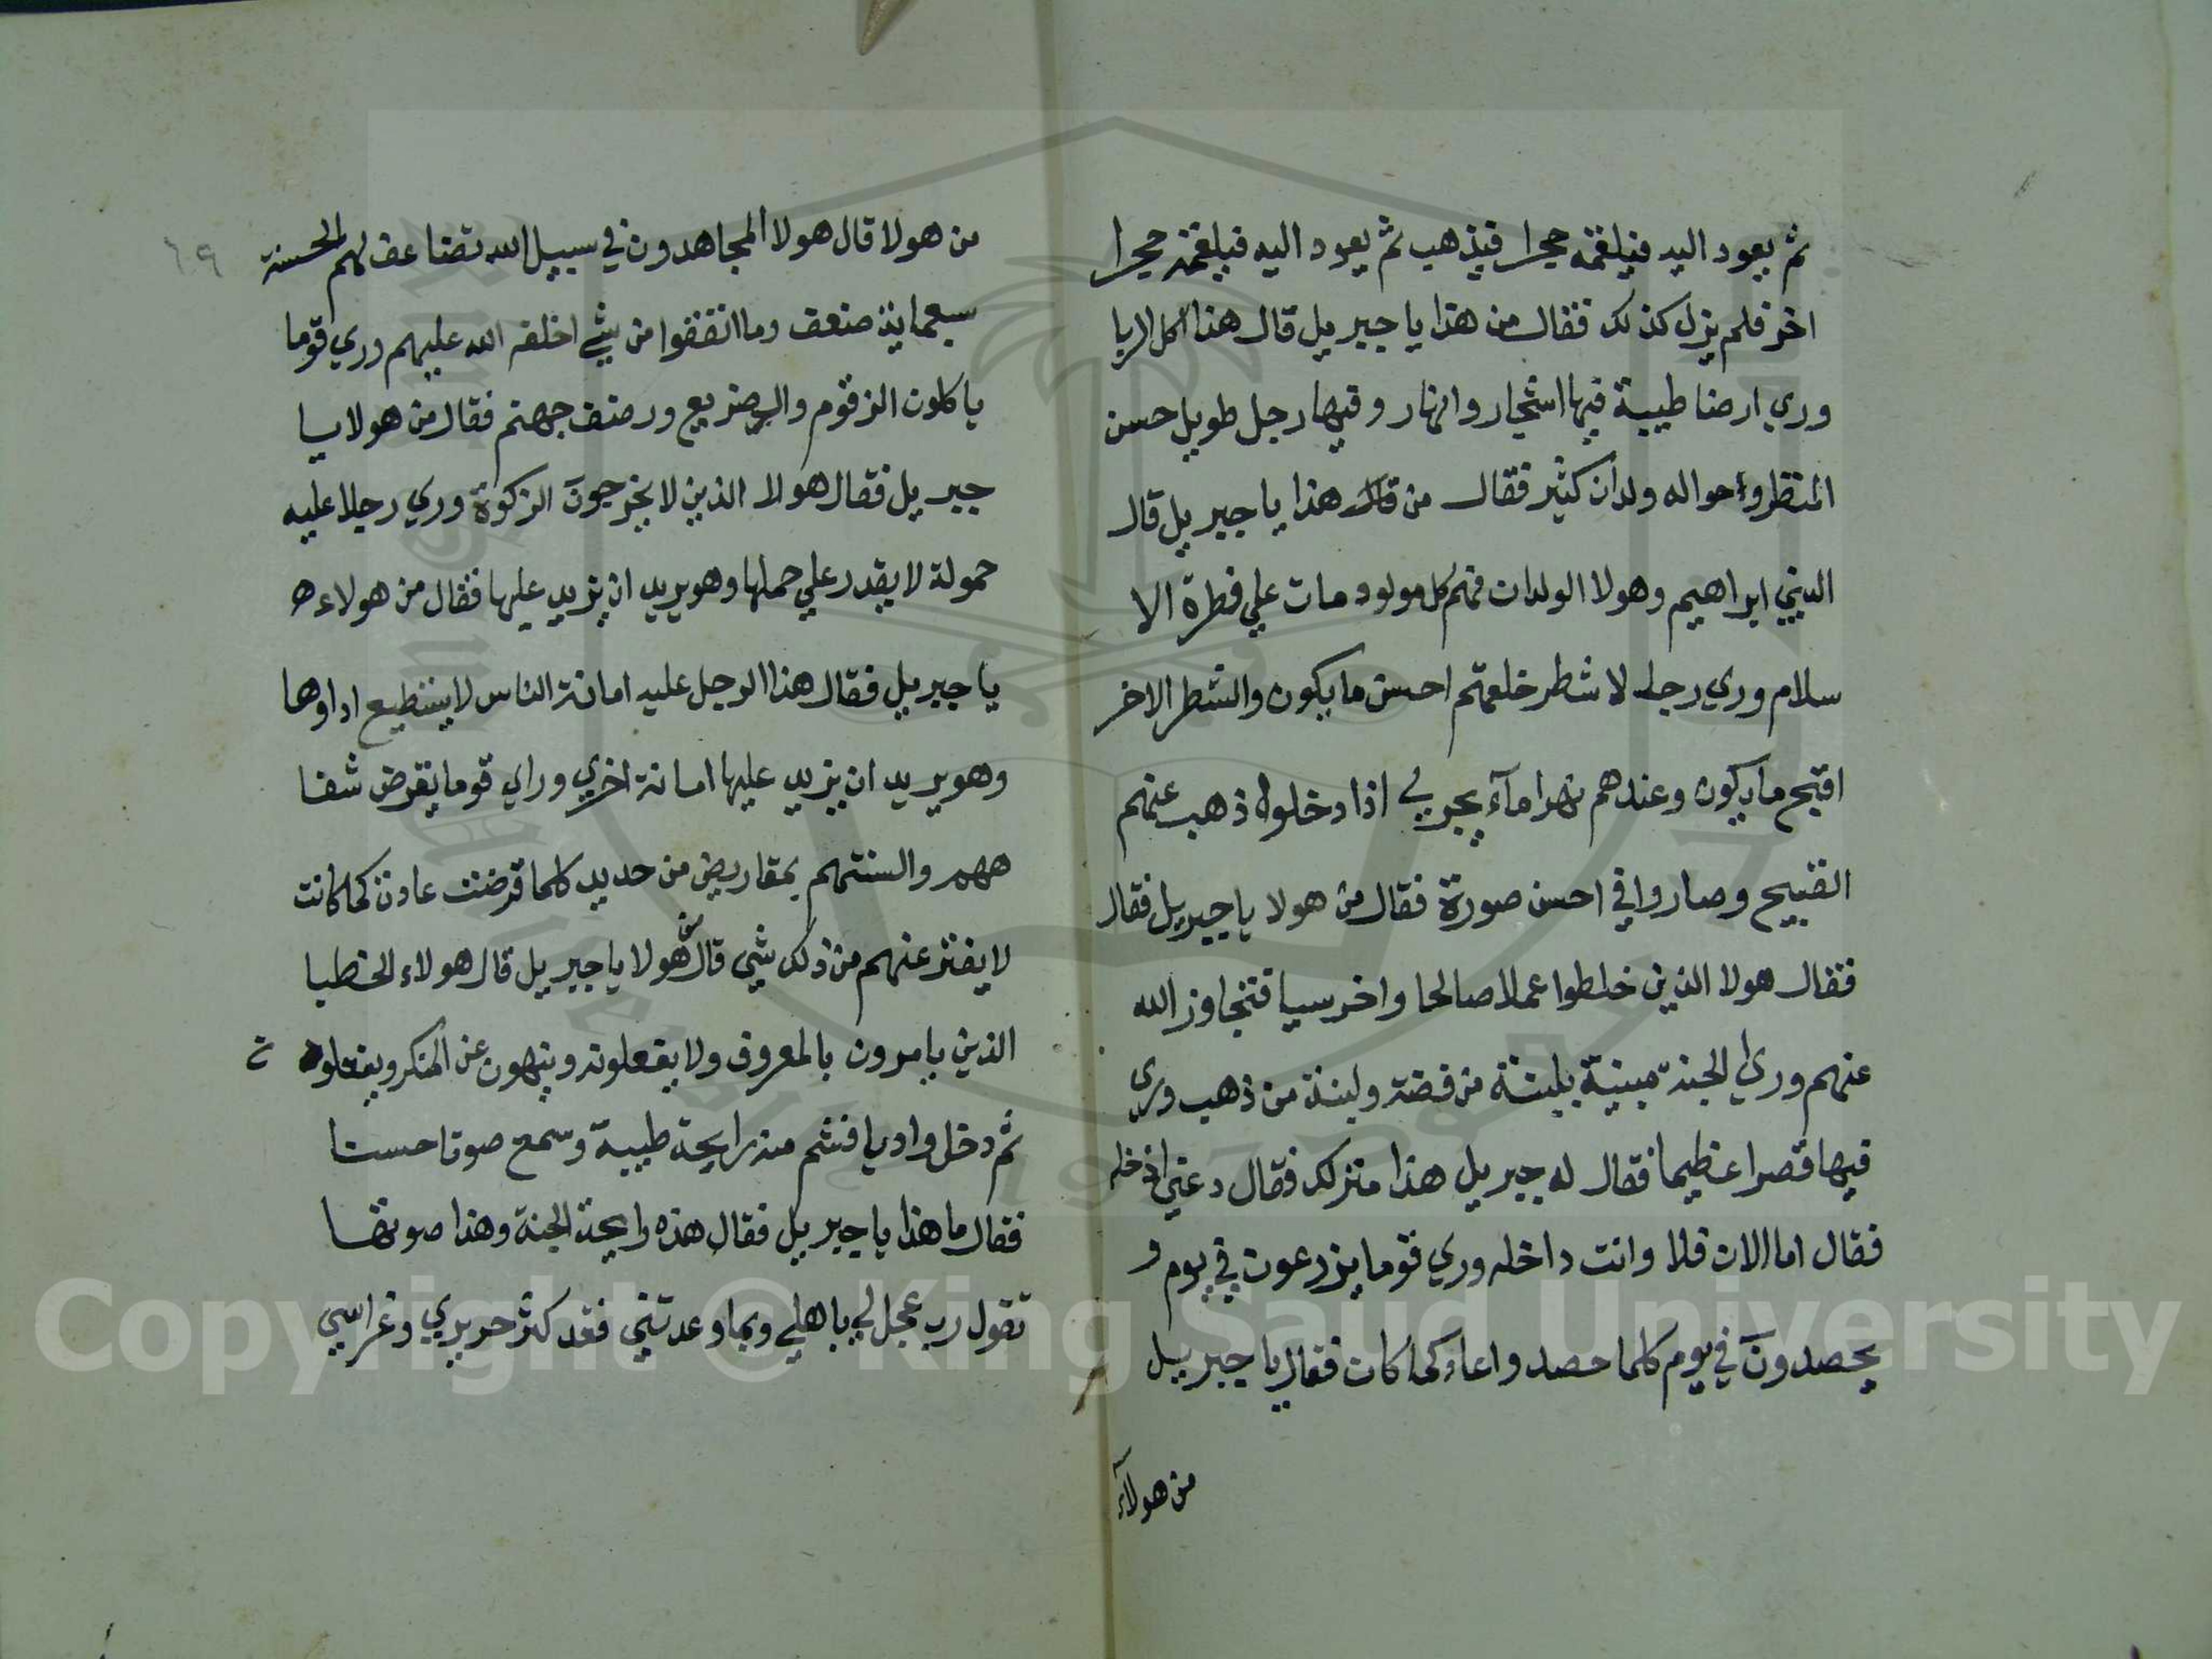 ثم يعود اليه فيلقمه حجرا فيذهب ثم يعود اليه فيلقمه حجرا
اخر فلم يزل كذلك فقال من هذا يا جبريل قال هذا اكل الربا
وري ارضا طيبة فيها اشجار وانهار وفيها رجل طويل حسن
المنظر وحواله ولدان كثير فقال من قال هذا يا جبريل قال
النبي ابراهيم وهولا الولدان فهم كل مولود مات علي فطرة الا
سلام وري رجالا شطر خلعتهم احسن ما يكون والشطر الاخر
اقبح ما يكون وعندهم نهرا مآء يجري اذا دخلوه ذهب عنهم
القبيح وصاروا في احسن صورة فقال من هولا يا جبريل فقال
فقال هولا الذين خلطوا عملا صالحا واخر سيا فتجاوز الله
عنهم وري الجنة مبنية بلبنة من فضة ولبنة من ذهب وري
فيها قصرا عظيما فقال له جبريل هذا منزلك فقال دعني ادخله
فقال اما الان فلا وانت داخله وري قوما يزرعون في يوم و
يحصدون في يوم كلما حصدوا عاد كما كان فقال يا جبريل
من هولآء
٦٩
من هولا قال هولا المجاهدون في سبيل الله تضاعف لهم الحسنة
سبعماية ضعف وما انفقوا من شي اخلفه الله عليهم وري قوما
ياكلون الزقوم والضريع ورضف جهنم فقال من هولا يا
جبريل فقال هولا الذين لا يخرجون الزكوة وري رجلا عليه
حمولة لا يقدر علي حملها وهو يريد ان يزيد عليها فقال من هولاء
يا جبريل فقال هذا الرجل عليه امانة الناس لا يستطيع اداوها
وهو يريد ان يزيد عليها امانة اخري وراي قوما يقرض شفا
ههم والسنتهم بمقاريض من حديد كلما قرضت عادت كما كانت
لا يفتر عنهم من ذلك شي قال من هولا يا جبريل قال هولاء الخطبا
الذين يامرون بالمعروف ولا يفعلونه وينهون عن المنكر ويفعلوه
ثم دخل واديا فشم منه رايحة طيبة وسمع صوتا حسنا
فقال ما هذا يا جبريل فقال هذه رايحة الجنة وهذا صوتها
تقول رب عجل لي باهلي وبما وعدتني فقد كثر حريري وغراسي
Copyright © King Saud University